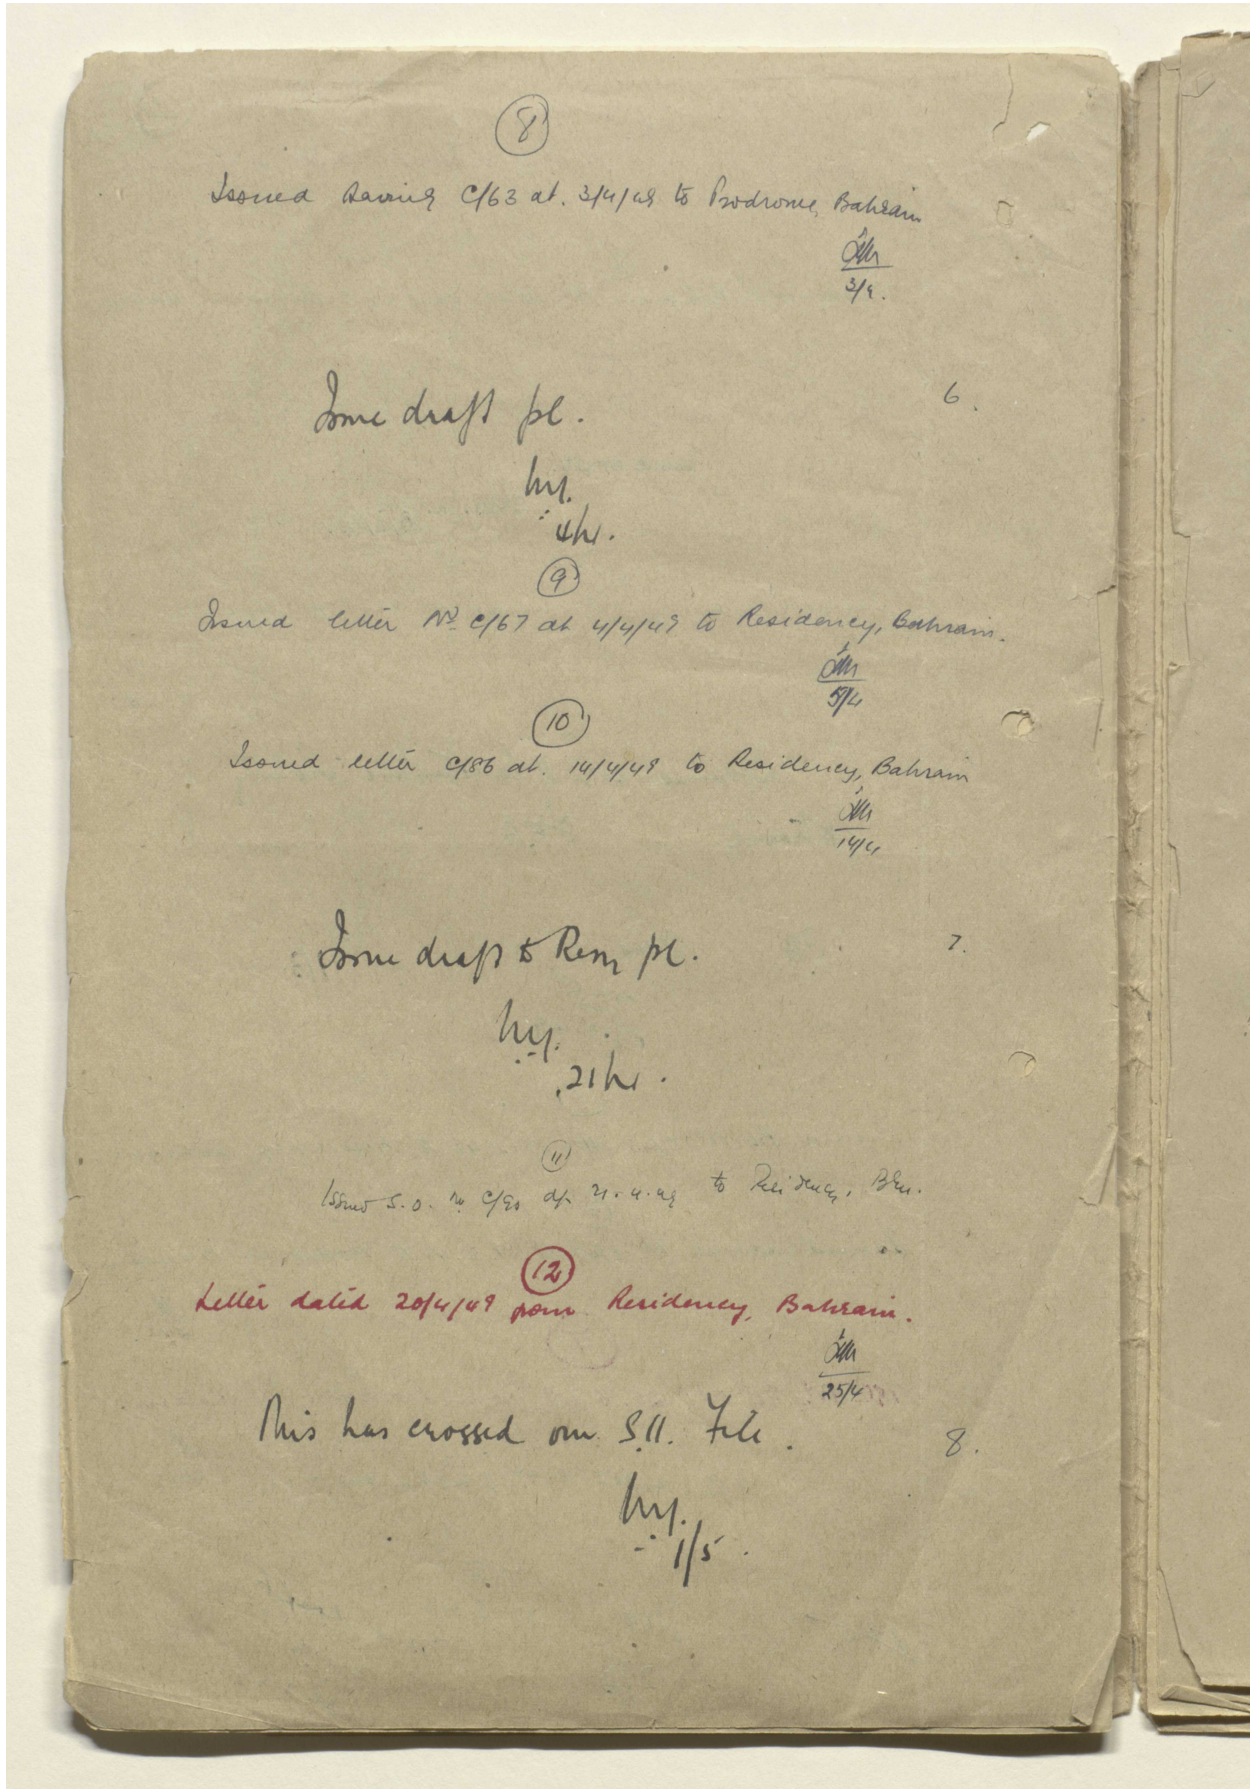 8
Issued Saving C/63 dt. 3/4/49 to Prodrome, Bahrain
3/4.
Issue draft pl.
6.
4/iv.
9
Issued letter No C/67 dt 4/4/49 to Residency, Bahrain.
5/4
10
Issued letter C/86 dt. 14/4/49 to Residency, Bahrain
14/4
Issue draft to Resy pl.
7.
21/iv.
11
Issued S.O. No C/90 dt. 21.4.49 to Residency, Bhn.
12
Letter dated 20/4/49 from Residency, Bahrain.
25/4
This has crossed our S.11. File.
8.
1/5.